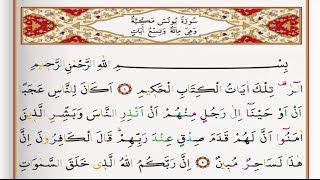 سُورَةُ يُونُسَ مَكِّيَّةٌ
وَهِيَ مِائَةٌ وَتِسْعُ اٰيَاتٍ
بِسْمِ اللّٰهِ الرَّحْمٰنِ الرَّحِيمِ
الٓرٰ تِلْكَ اٰيَاتُ الْكِتَابِ الْحَكِيمِ ۝١ اَكَانَ لِلنَّاسِ عَجَبًا
اَنْ اَوْحَيْنَٓا اِلٰى رَجُلٍ مِنْهُمْ اَنْ اَنْذِرِ النَّاسَ وَبَشِّرِ الَّذِينَ
اٰمَنُٓوا اَنَّ لَهُمْ قَدَمَ صِدْقٍ عِنْدَ رَبِّهِمْ قَالَ الْكَافِرُونَ اِنَّ
هٰذَا لَسَاحِرٌ مُبِينٌ ۝٢ اِنَّ رَبَّكُمُ اللّٰهُ الَّذِي خَلَقَ السَّمٰوَاتِ